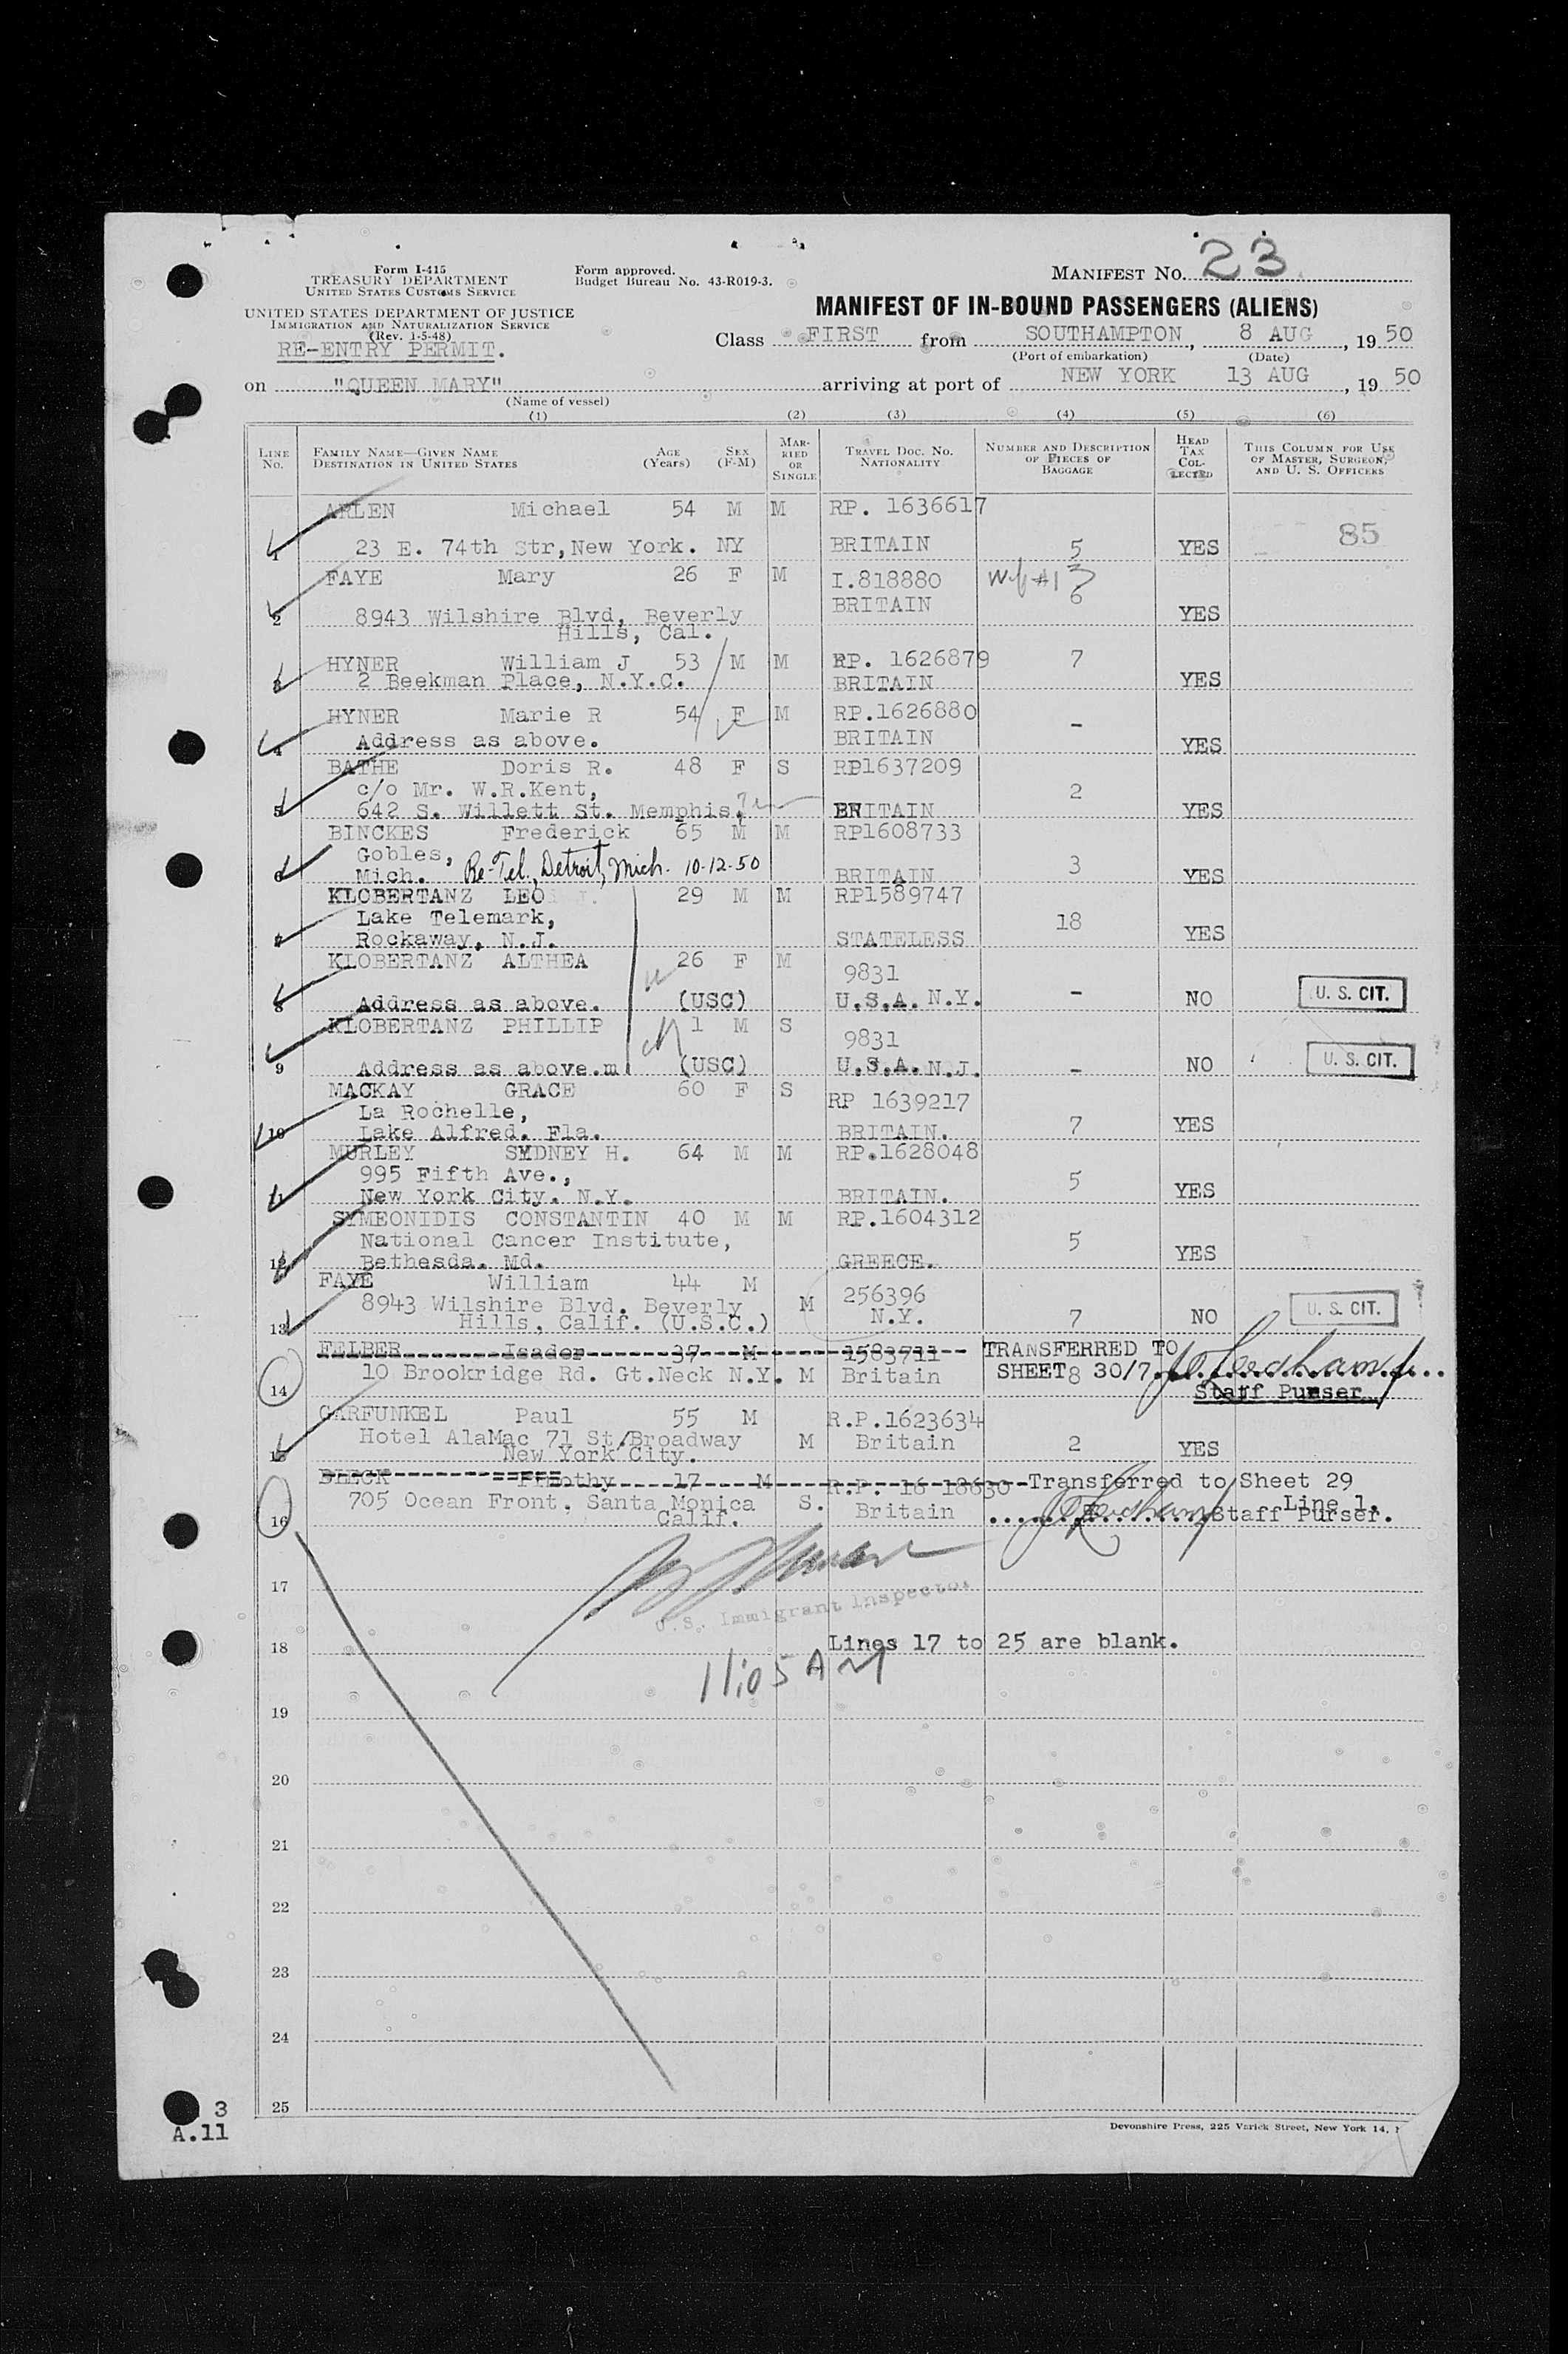 Form I-415
TREASURY DEPARTMENT
UNITED STATES CUSTOMS SERVICE
UNITED STATES DEPARTMENT OF JUSTICE
IMMIGRATION AND NATURALIZATION SERVICE
(Rev. 1-5-48)
RE-ENTRY PERMIT.
Form approved.
Budget Bureau No. 43-R019-3.
MANIFEST NO. 23
MANIFEST OF IN-BOUND PASSENGERS (ALIENS)
Class FIRST from SOUTHAMPTON, 8 AUG, 19 50
(Port of embarkation) (Date)
on "QUEEN MARY" arriving at port of NEW YORK 13 AUG, 19 50
(Name of vessel)
(1) (2) (3) (4) (5) (6)
LINE NO. FAMILY NAME—GIVEN NAME DESTINATION IN UNITED STATES AGE (Years) SEX (F-M) MARRIED OR SINGLE TRAVEL DOC. NO. NATIONALITY NUMBER AND DESCRIPTION OF PIECES OF BAGGAGE HEAD TAX COLLECTED THIS COLUMN FOR USE OF MASTER, SURGEON, AND U. S. OFFICERS
ARLEN Michael 54 M M RP. 1636617
1 23 E. 74th Str, New York. NY BRITAIN 5 YES 85
FAYE Mary 26 F M I.818880
BRITAIN 6
2 8943 Wilshire Blvd, Beverly YES
Hills, Cal.
HYNER William J 53 M M RP. 1626879 7
3 2 Beekman Place, N.Y.C. BRITAIN YES
HYNER Marie R 54 F M RP.1626880 -
4 Address as above. BRITAIN YES
BATHE Doris R. 48 F S RP1637209
c/o Mr. W.R.Kent, 2
5 642 S. Willett St. Memphis. BRITAIN YES
BINCKES Frederick 65 M M RP1608733
Gobles, 3
6 Mich. Re-Tel. Detroit, Mich. 10-12-50 BRITAIN YES
KLOBERTANZ LEO 29 M M RP1589747
Lake Telemark, 18
7 Rockaway, N.J. STATELESS YES
KLOBERTANZ ALTHEA 26 F M 9831
8 Address as above. (USC) U.S.A. N.Y. - NO U. S. CIT.
KLOBERTANZ PHILLIP 1 M S 9831
9 Address as above.m (USC) U.S.A. N.J. - NO U. S. CIT.
MACKAY GRACE 60 F S RP 1639217
La Rochelle,
10 Lake Alfred. Fla. BRITAIN. 7 YES
MURLEY SYDNEY H. 64 M M RP.1628048
995 Fifth Ave., 5
11 New York City. N.Y. BRITAIN. YES
SYMEONIDIS CONSTANTIN 40 M M RP.1604312
National Cancer Institute, 5
12 Bethesda. Md. GREECE. YES
FAYE William 44 M 256396
8943 Wilshire Blvd. Beverly M N.Y.
13 Hills, Calif. (U.S.C.) 7 NO U. S. CIT.
FELBER Isador 37 M 1583711 TRANSFERRED TO
14 10 Brookridge Rd. Gt.Neck N.Y. M Britain SHEET 8 30/7.
Staff Purser
GARFUNKEL Paul 55 M R.P.1623634
Hotel AlaMac 71 St/Broadway M Britain 2 YES
15 New York City.
BLECK Timothy 17 M R.P. 16 18630 Transferred to Sheet 29
Line 1.
705 Ocean Front. Santa Monica S. Britain Staff Purser.
16 Calif.
17
U.S. Immigrant Inspector
18 Lines 17 to 25 are blank.
11:05 AM
19
20
21
22
23
24
25
3
A.11
Devonshire Press, 225 Varick Street, New York 14,